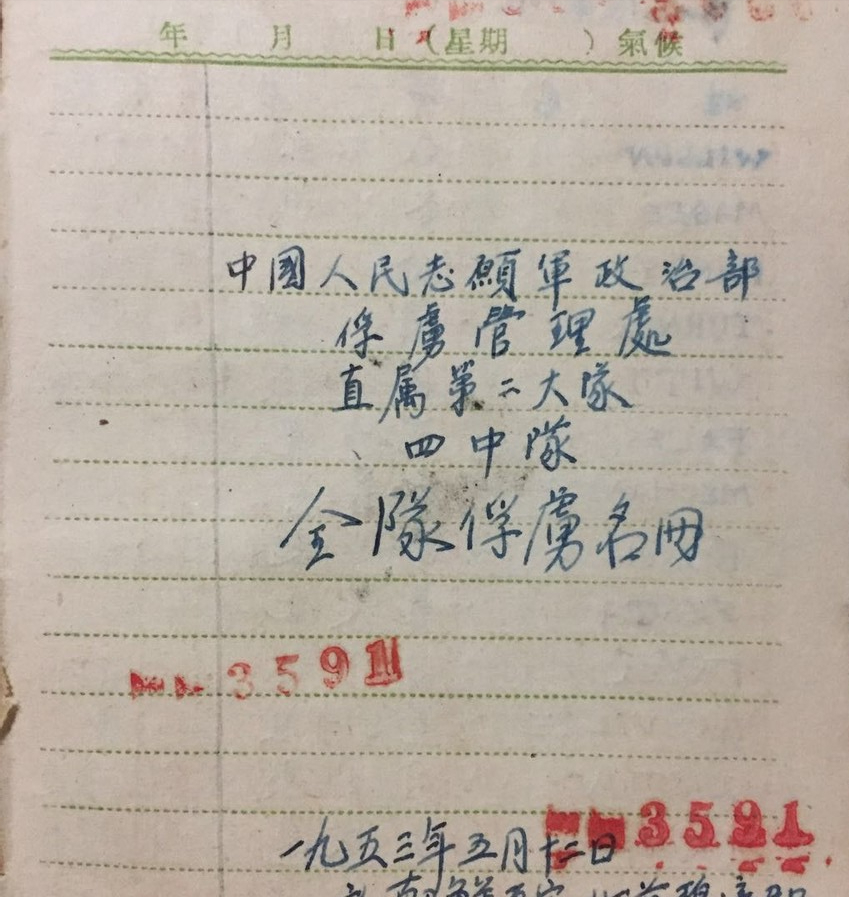 年 月 日 (星期 ) 氣候
中國人民志願軍政治部
俘虜管理處
直属第二大隊
四中隊
全隊俘虜名册
3591
3591
一九五三年五月十二日
朝鮮